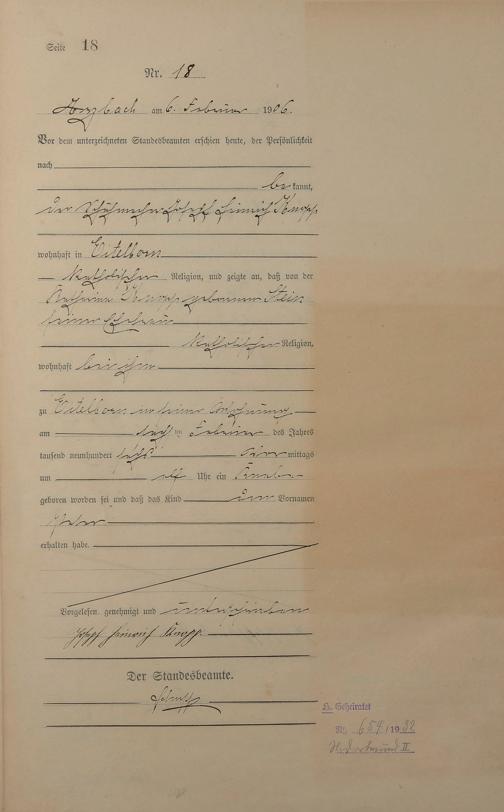 Seite 18
Nr. 18
Arzbach am 6. Februar 1906.
Vor dem unterzeichneten Standesbeamten erschien heute, der Persönlichkeit
nach
bekannt,
der Schuhmacher Joseph Heinrich Knopp
wohnhaft in Eitelborn
katholischer Religion, und zeigte an, daß von der
Katharina Knopp geborenen Stein
seiner Ehefrau
katholischer Religion,
wohnhaft bei ihm
zu Eitelborn in seiner Wohnung
am Februar des Jahres
tausend neunhundert sechs vormittags
um elf Uhr ein Knabe
geboren worden sei und daß das Kind den Vornamen
Peter
erhalten habe.
Vorgelesen, genehmigt und unterschrieben
Joseph Heinrich Knopp
Der Standesbeamte.
H. Geheiratet
Nr. 654/1932
II